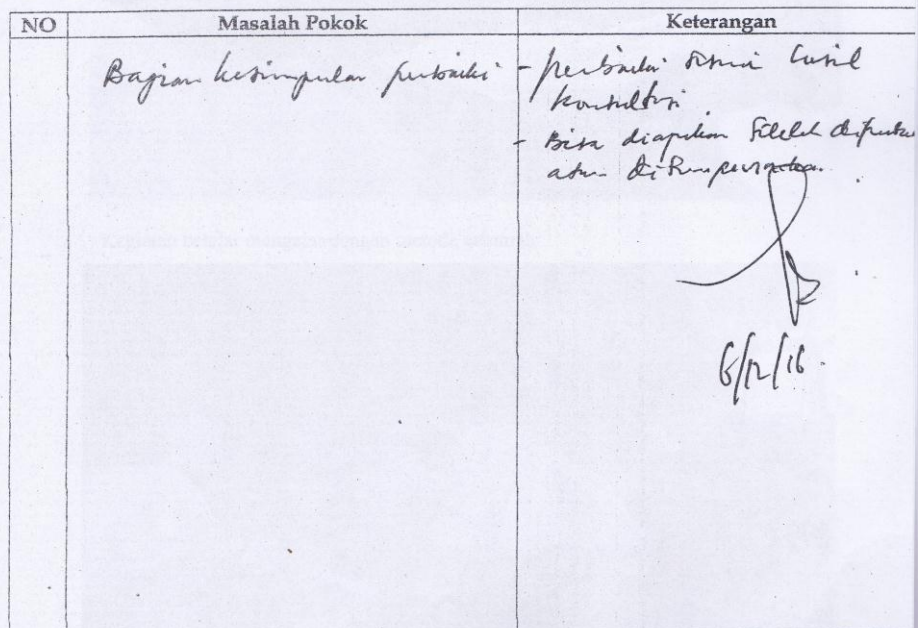 NO Masalah Pokok Keterangan
Bagian kesimpulan perbaiki
- perbaiki sesuai hasil
konsultasi
- Bisa diajukan setelah
atau
6/12/16.